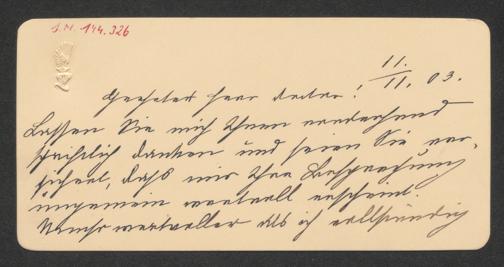 I.N. 144.326
11./11. 03.
Geehrter Herr Doctor!
Lassen Sie mich Ihnen vorderhand
schriftlich danken, und seien Sie ver-
sichert, daß mir Ihre Besprechung
ungemein wertvoll erscheint.
Umso wertvoller als ich vollständig